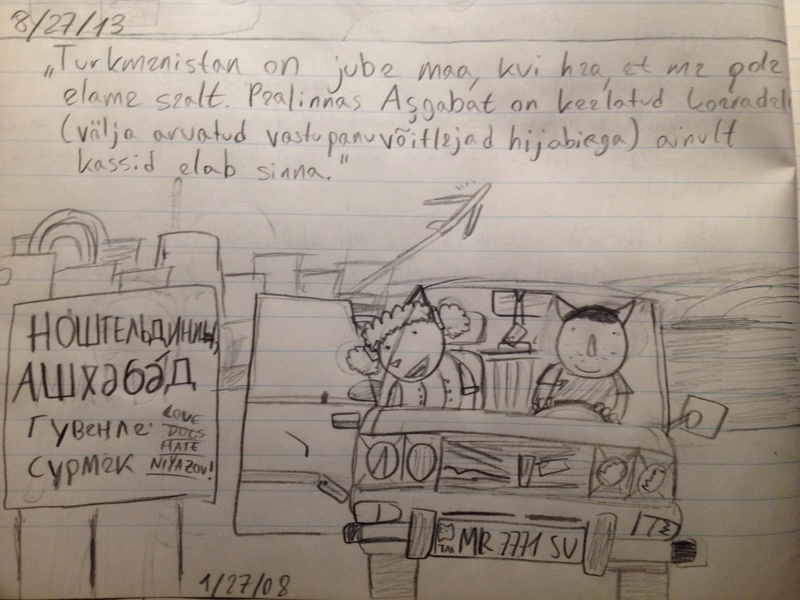 8/27/13
„Turkmenistan on jube maa, kvi hea, et me pole
elame sealt. Pealinnas Aşgabat on keelatud
(välja arvatud vastupanuvõitlejad hijabiega) ainult
kassid elab sinna."
НОШТЕЛЬДИНИЦ,
АШХәБәД
ГУВЕНЛЕ
СҮРМЕК
LOVE
DOGS
HATE
NIYAZOV!
MR 7771 SU
1/27/08